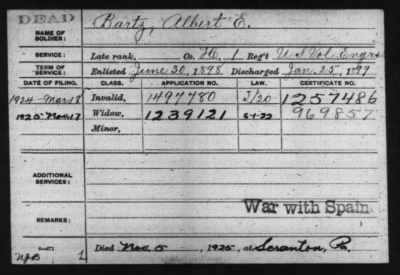 DEAD
NAME OF SOLDIER: Bartz, Albert E.
SERVICE: Late rank, Co. H, 1 Reg't U S Vol. Engrs
TERM OF SERVICE: Enlisted June 30, 1898 Discharged Jan. 25, 1899
DATE OF FILING. CLASS. APPLICATION NO. LAW. CERTIFICATE NO.
1924-Mar 18 Invalid, 1497780 1257486
1925 Nov 17 Widow, 1239121 5-1-22 969857
Minor,
ADDITIONAL SERVICES:
War with Spain.
REMARKS:
Died Nov. 5 1925, at Scranton, Pa.
1